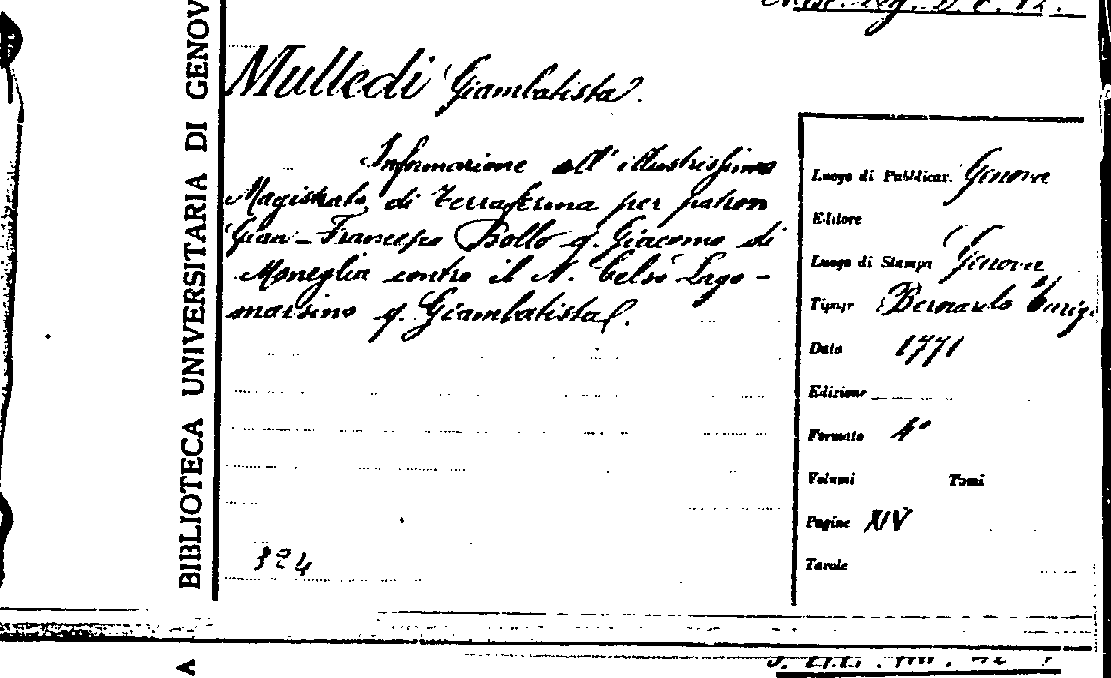 BIBLIOTECA UNIVERSITARIA DI GENOV
Mulledi Giambatista.
Informazione all' illustrissimo
Magistrato di Terraferma per patron
Gian-Francesco Bollo q. Giacomo di
Moneglia contro il N. Celso Lago-
marsino q. Giambatista.
324
Luogo di Pubblicaz. Genova
Editore
Luogo di Stampa Genova
Tipogr Bernardo
Data 1771
Edizione
Formato 4°
Volumi Tomi
Pagine XIV
Tavole
A